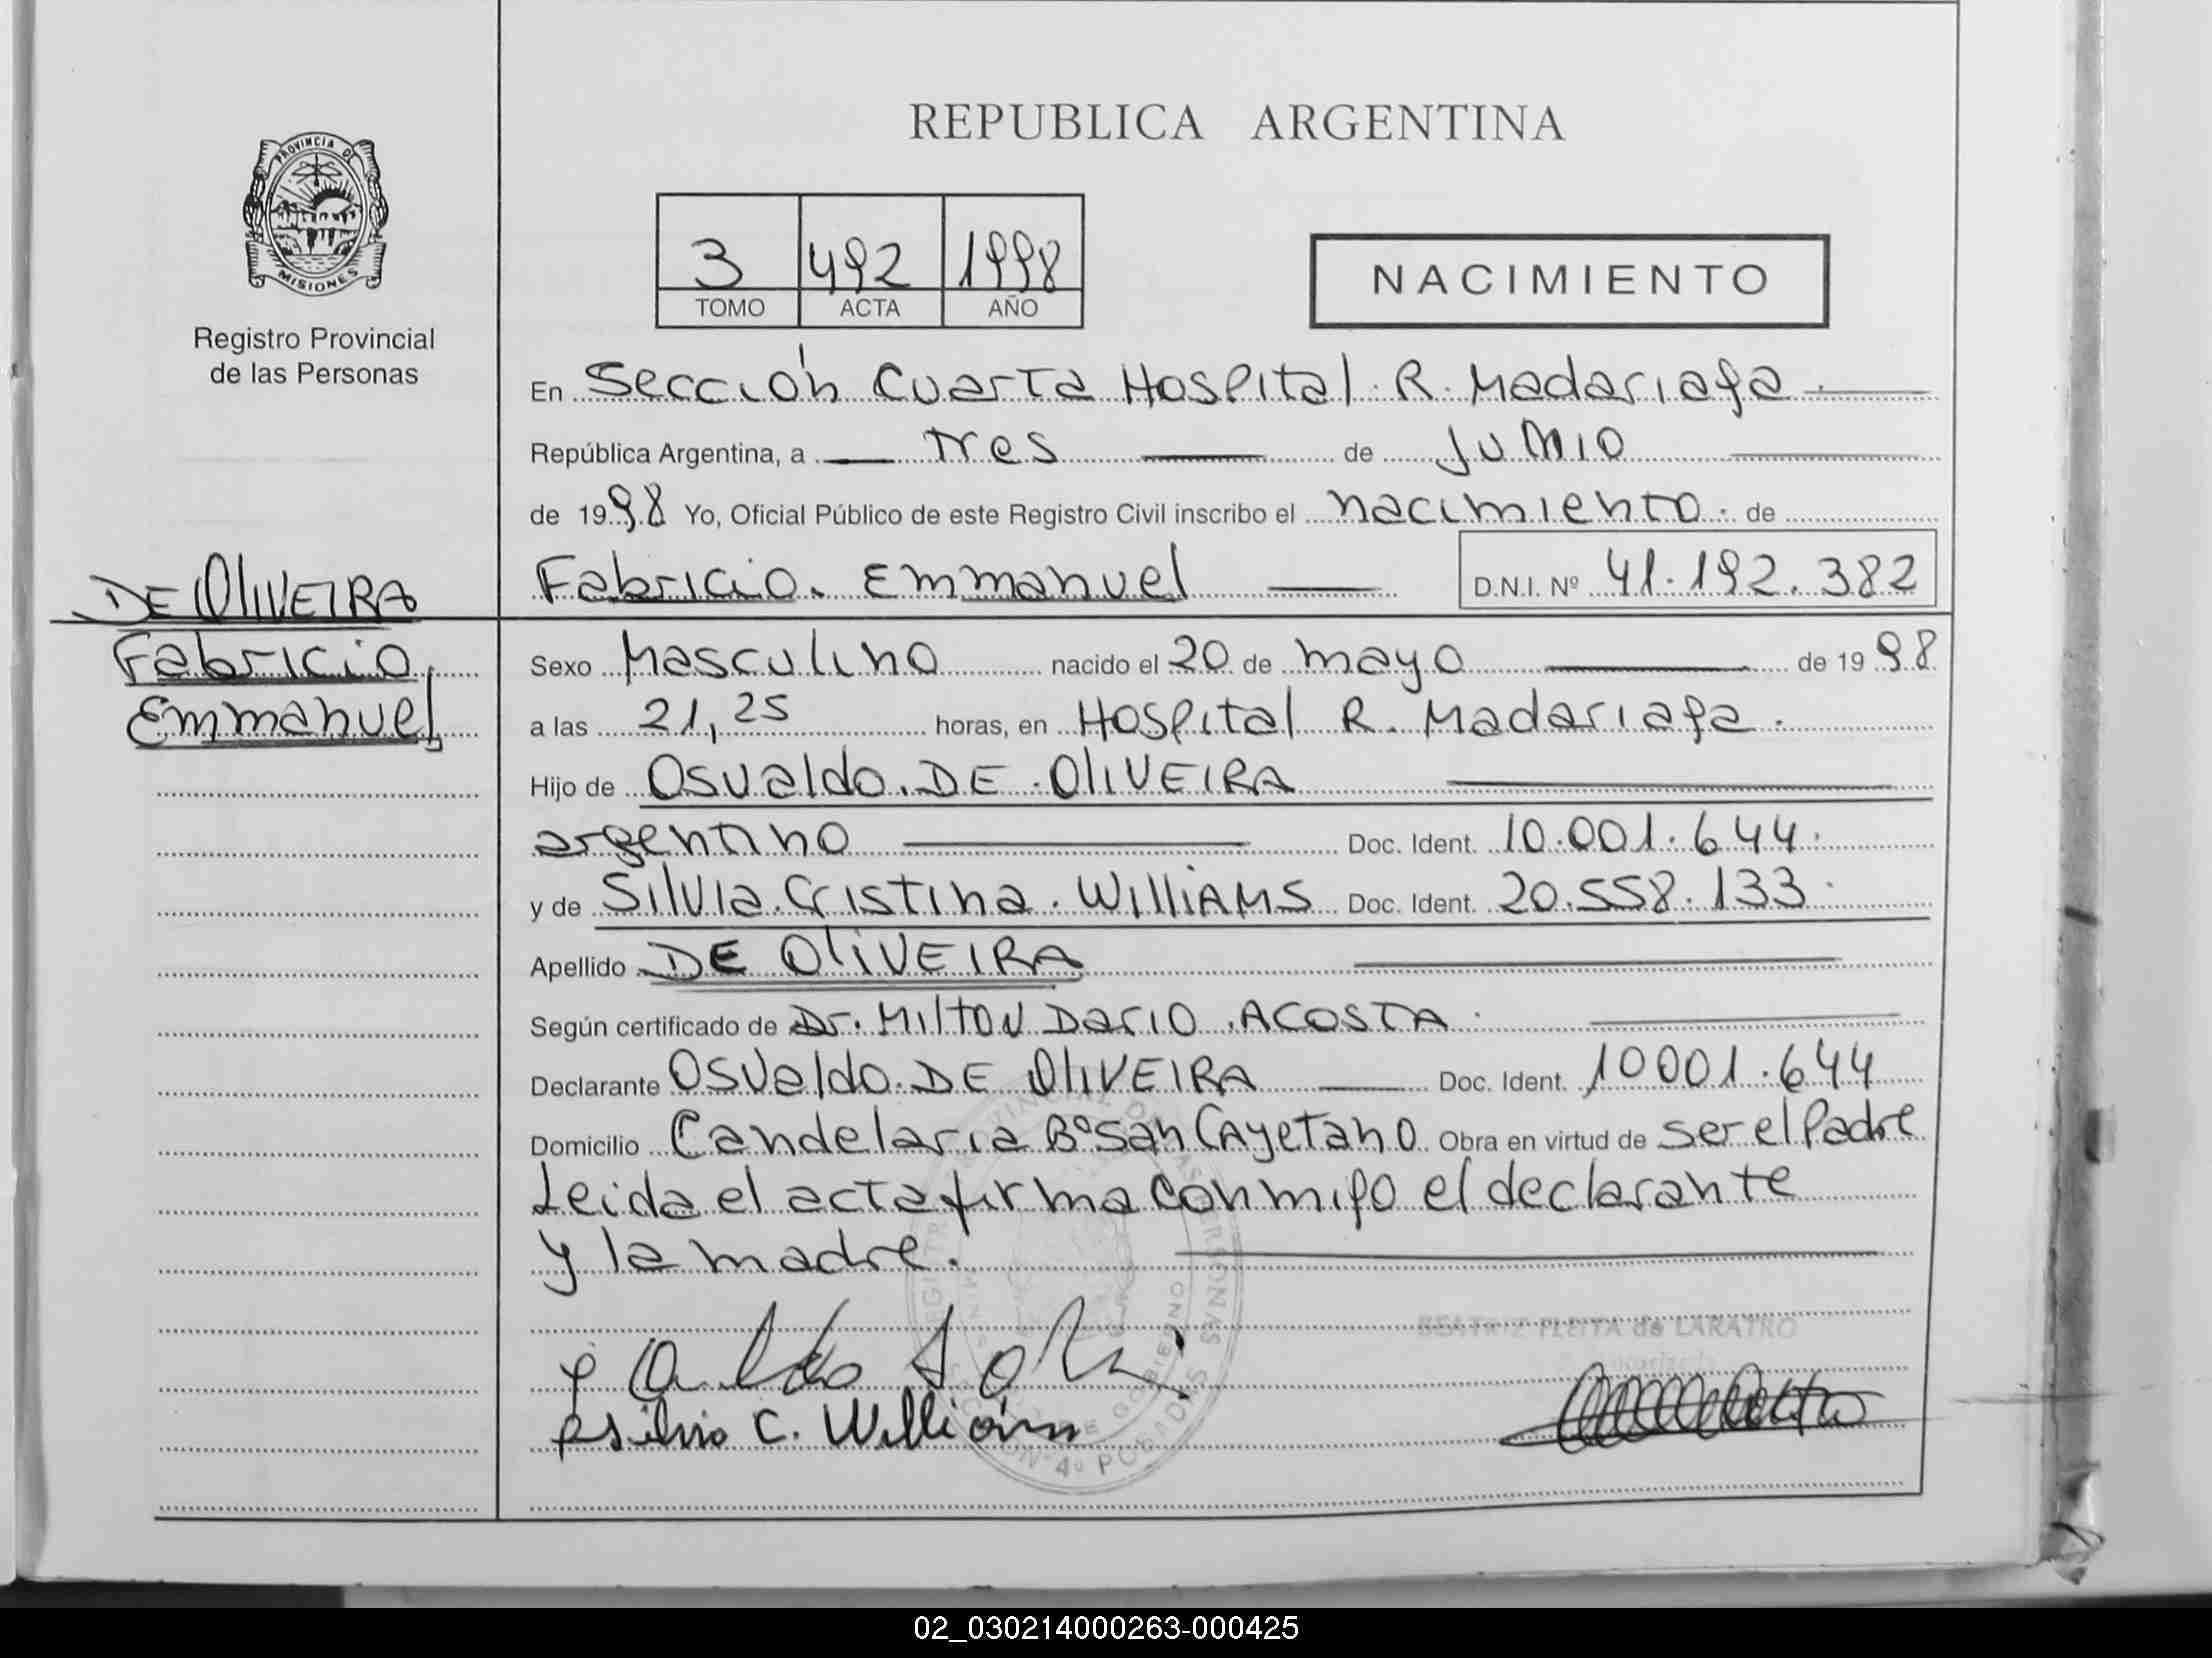 PROVINCIA DE
MISIONES
Registro Provincial
de las Personas
REPUBLICA ARGENTINA
3 492 1998
TOMO ACTA AÑO
NACIMIENTO
En Sección Cuarta Hospital R. Madariaga
República Argentina, a tres de junio
de 1998 Yo, Oficial Público de este Registro Civil inscribo el nacimiento de
Fabricio Emmanuel D.N.I. Nº 41.192.382
DE OLIVEIRA
Fabricio
Emmanuel
Sexo Masculino nacido el 20 de mayo de 1998
a las 21,25 horas, en Hospital R. Madariaga.
Hijo de Osvaldo DE OLIVEIRA
argentino Doc. Ident. 10.001.644.
y de Silvia Cristina WILLIAMS Doc. Ident. 20.558.133
Apellido DE OLIVEIRA
Según certificado de Dr. Milton Dario ACOSTA
Declarante Osvaldo DE OLIVEIRA Doc. Ident. 10001.644
Domicilio Candelaria Bº San Cayetano Obra en virtud de ser el Padre
Leida el acta firma conmigo el declarante
y la madre.
BEATRIZ PLEITA de LARATRO
Silvia C. Williams
02_030214000263-000425